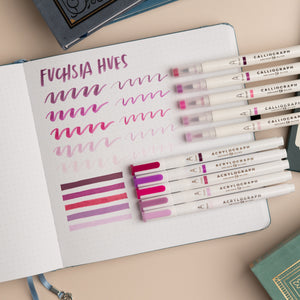 FUCHSIA HUES
CALLIOGRAPH
CALLIOGRAPH
CALLIOGRAPH
CALLIOGRAPH
CALLIOGRAPH
ACRYLOGRAPH
ACRYLOGRAPH
ACRYLOGRAPH
ACRYLOGRAPH
ACRYLOGRAPH